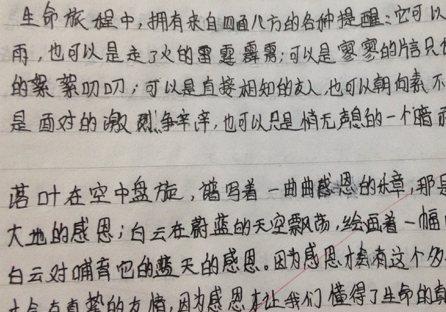 生命旅程中,拥有来自四面八方的各种提醒:它可以
雨,也可以是走了火的雷霆霹雳;可以是寥寥的片言只
的絮絮叨叨;可以是直接相知的友人,也可以朝向素不
是面对的激烈争辛辛,也可以只是悄无声息的一个暗
落叶在空中盘旋,谱写着一曲曲感恩的乐章,那是
大地的感恩;白云在蔚蓝的天空飘荡,绘画着一幅
白云对哺育它的蓝天的感恩。因为感恩才会有这个多
才会有真挚的友情,因为感恩才让我们懂得了生命的真